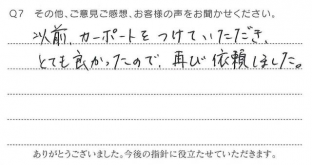 Q7 その他、ご意見ご感想、お客様の声をお聞かせください。
以前、カーポートをつけていただき、
とても良かったので、再び依頼しました。
ありがとうございました。今後の指針に役立たせていただきます。